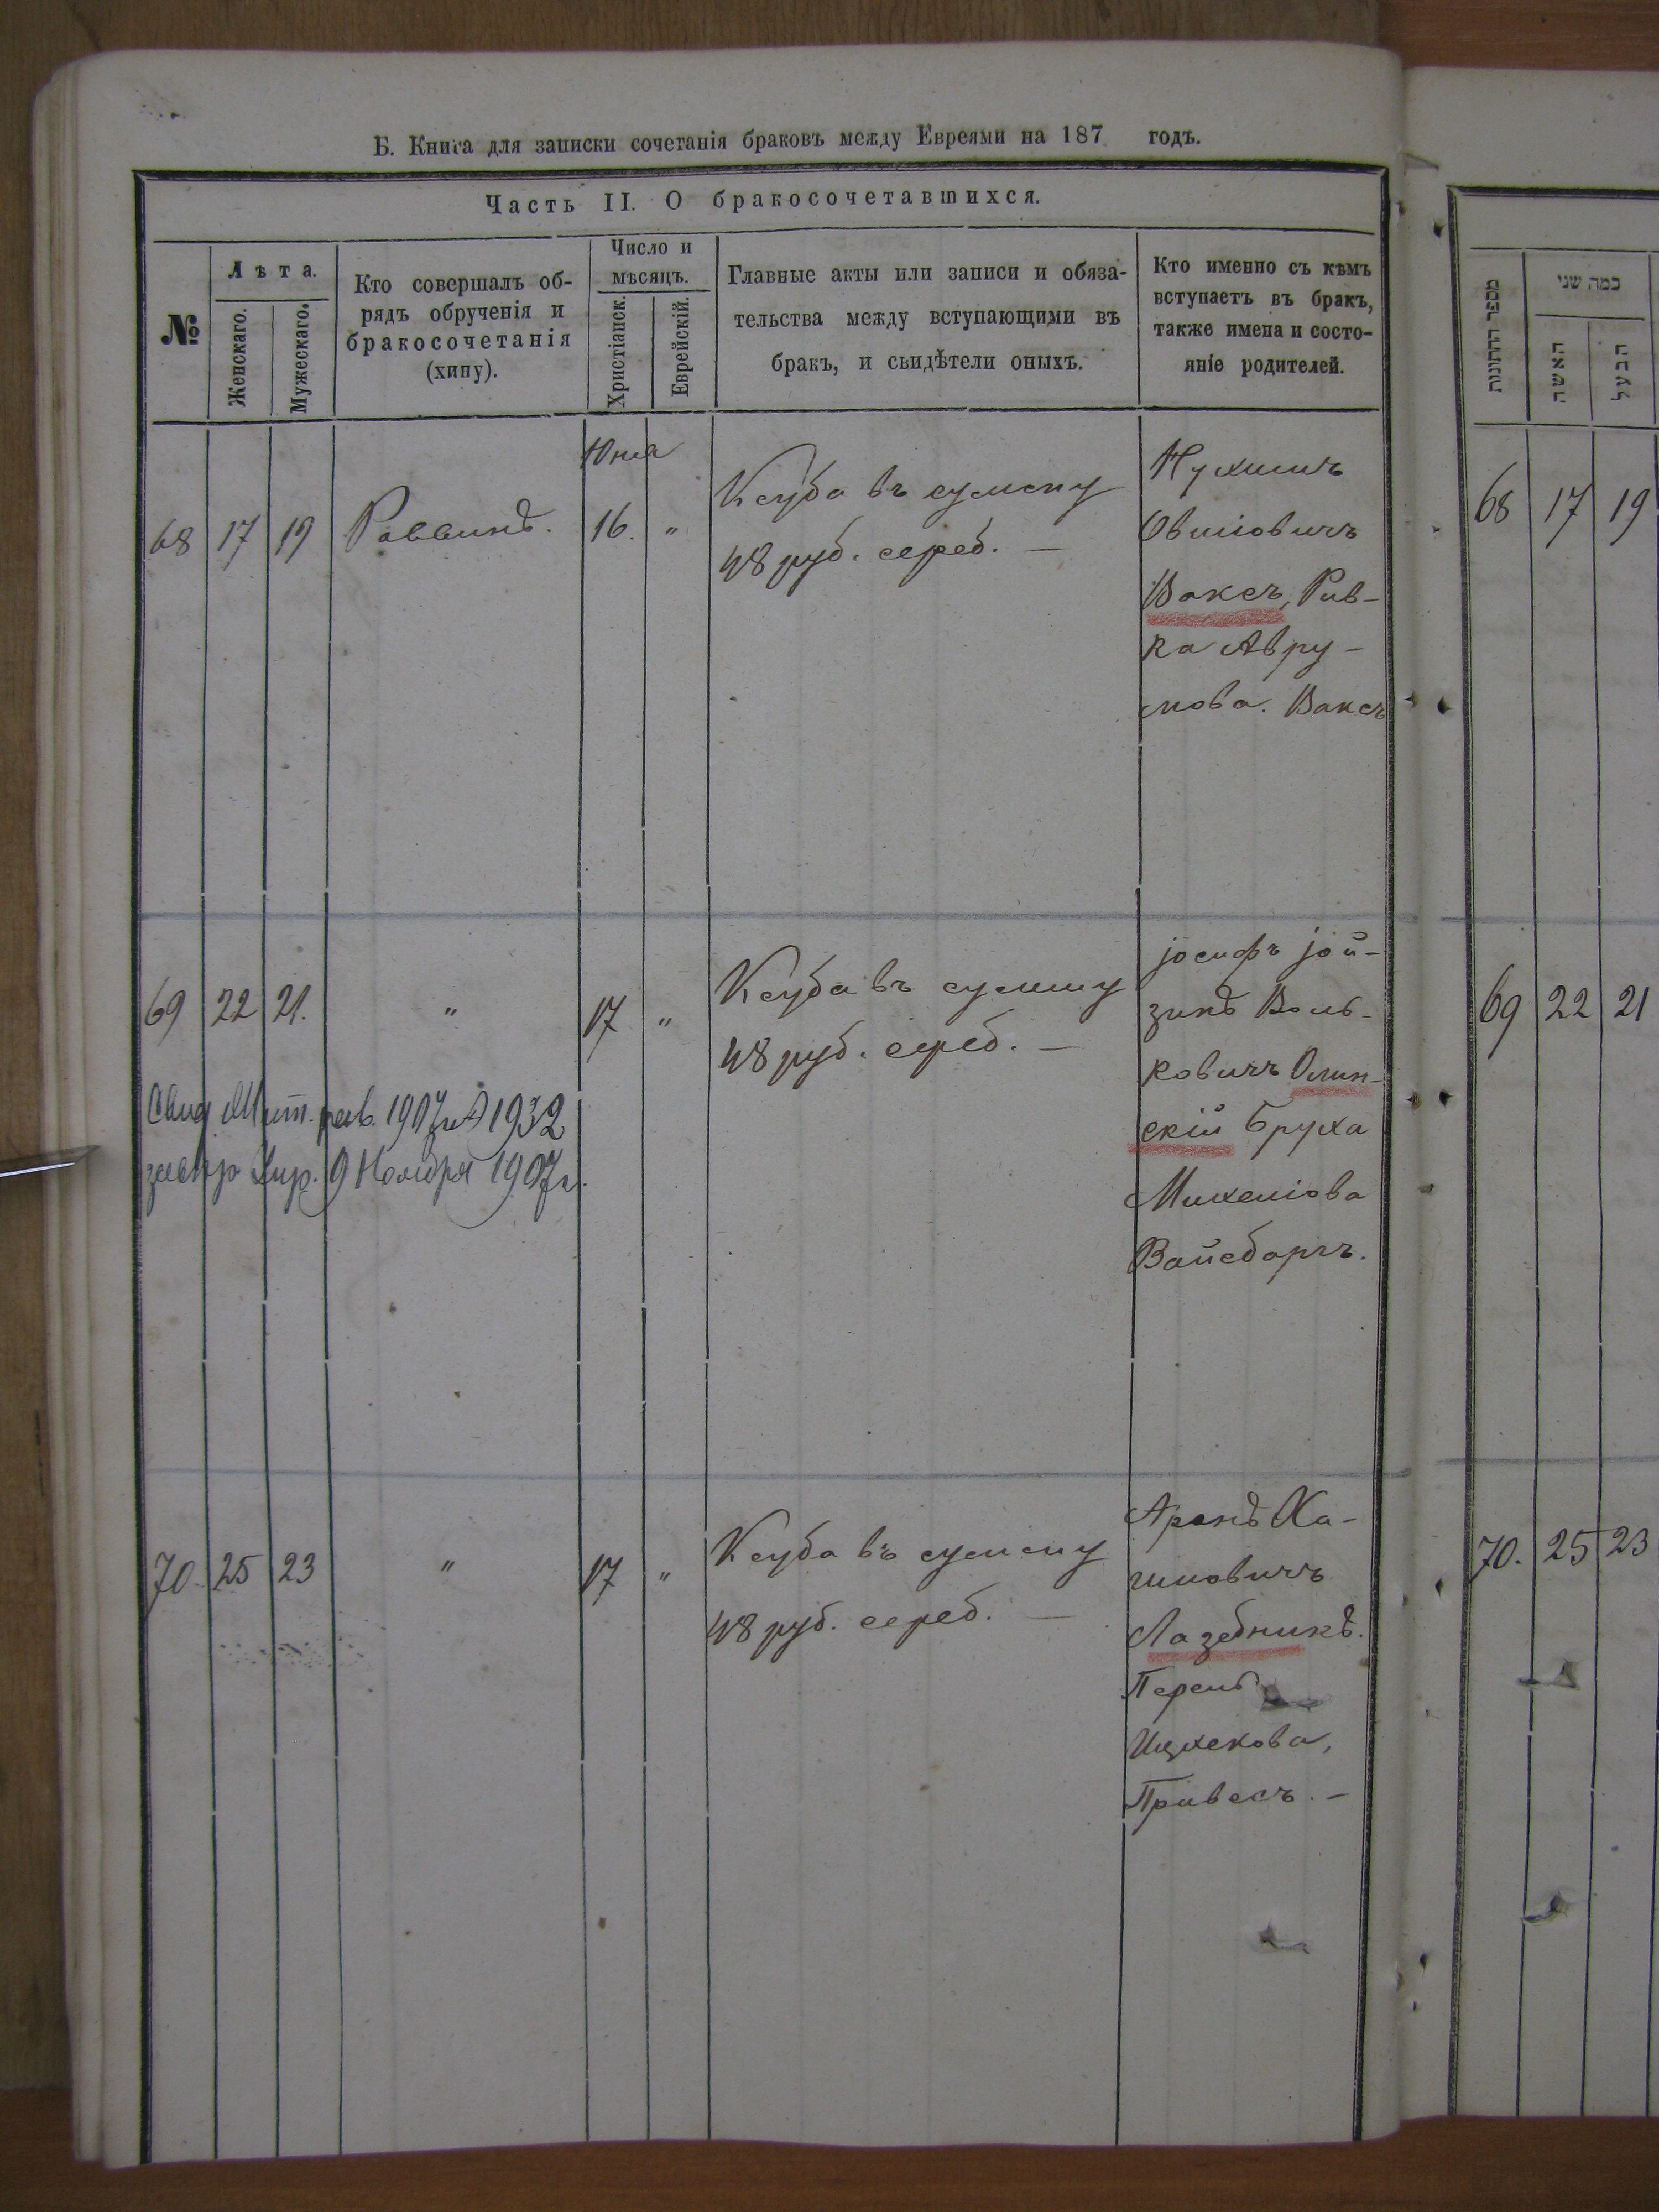 Б. Книга для записки сочетанія браковъ между Евреями на 187 годъ.
Часть II. О бракосочетавшихся.
№
Лѣта.
Женскаго.
Мужескаго.
Кто совершалъ об-
рядъ обрученія и
бракосочетанія
(хипу).
Число и
мѣсяцъ.
Христіанск.
Еврейскій.
Главные акты или записи и обяза-
тельства между вступающими въ
бракъ, и свидѣтели оныхъ.
Кто именно съ кѣмъ
вступаетъ въ бракъ,
также имена и состо-
яніе родителей.
68 17 19 Раввинъ.
Юня
16. "
Ксуба въ сумму
48 руб. сереб. —
Нухимъ
Овшіовичъ
Ваксъ, Рив-
ка Авру-
мова. Ваксъ
69 22 21. " 17 "
Ксуба въ сумму
48 руб. сереб. —
Іосифъ Іой-
зикъ Воль-
ковичъ Олин-
скій Бруха
Михеліова
Вайсбаргъ.
1907 г. № 1932
9 Ноября 1907 г.
70. 25 23 " 17 "
Ксуба въ сумму
48 руб. сереб. —
Аронъ Ха-
имовичъ
Лазебникъ.
Перель
Ицхекова,
Привесъ. —
מספר החתונות
כמה שני
האשה
הבעל
68 17 19
69 22 21
70. 25 23